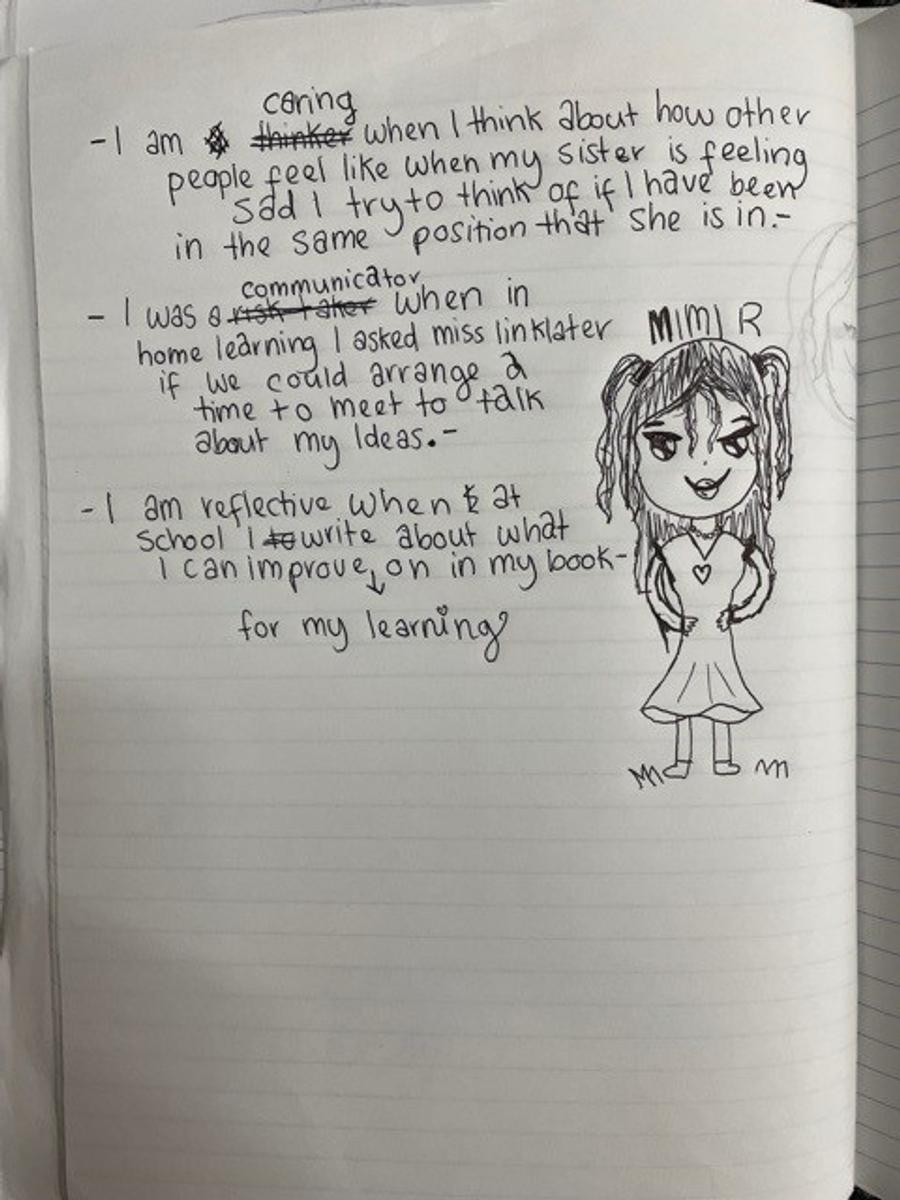 caring
- I am thinker when I think about how other
people feel like when my sister is feeling
sad I try to think of if I have been
in the same position that she is in.-
communicator
- I was a risk-taker when in
home learning I asked miss linklater
if we could arrange a
time to meet to talk
about my Ideas.-
MIMI R
- I am reflective when at
school I to write about what
I can improve on in my book-
for my learning